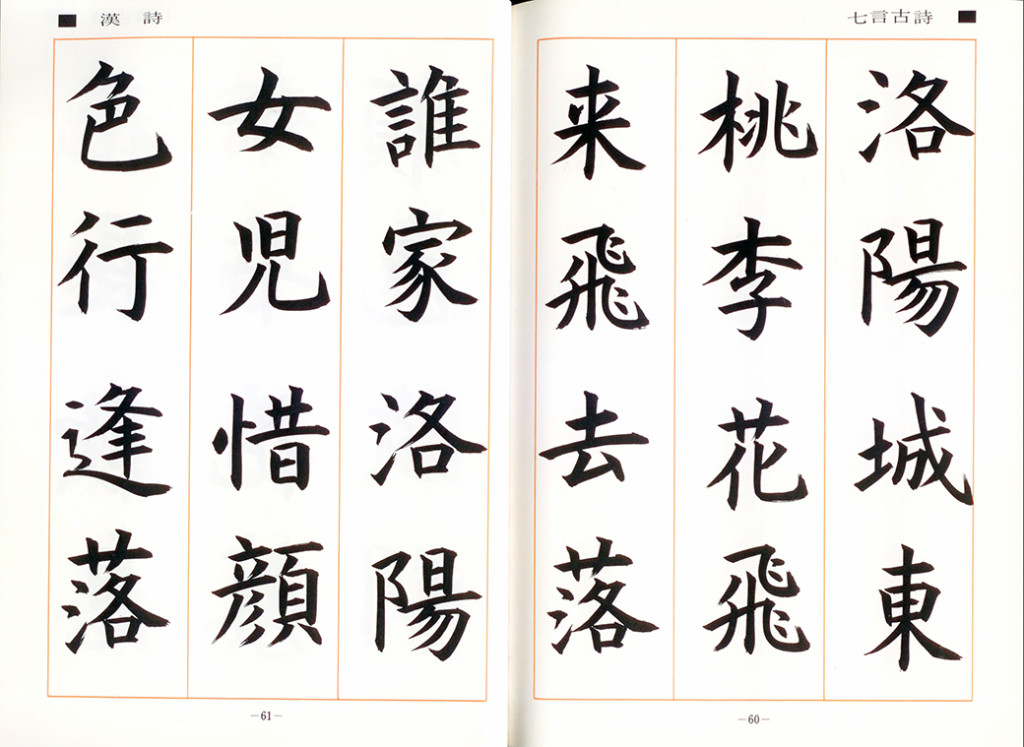 七言古詩
洛陽城東
桃李花飛
来飛去落
―60―
漢詩
誰家洛陽
女児惜顔
色行逢落
―61―